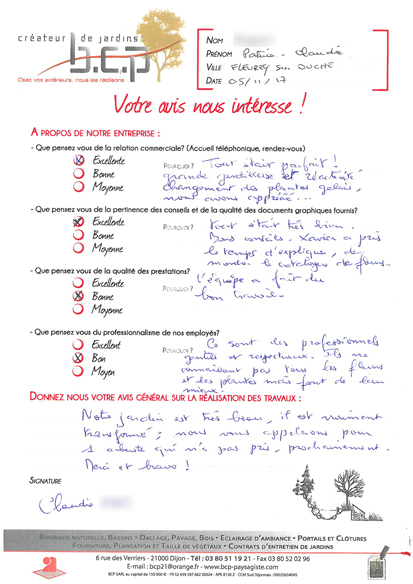 créateur de jardins
b.c.p
Osez vos extérieurs, nous les jardinons
NOM
PRÉNOM Patricia - Claudie
VILLE FLEUREY SUR OUCHE
DATE 05/11/17
Votre avis nous intéresse !
A PROPOS DE NOTRE ENTREPRISE :
- Que pensez vous de la relation commerciale? (Accueil téléphonique, rendez-vous)
Excellente
Bonne
Moyenne
POURQUOI ? Tout était parfait !
grande gentillesse et réactivité
changement des plantes gelées,
nous avons apprécié...
- Que pensez vous de la pertinence des conseils et de la qualité des documents graphiques fournis?
Excellente
Bonne
Moyenne
POURQUOI ? Tout était très bien.
Bons conseils. Xavier a pris
le temps d'expliquer, de
montrer le catalogue de fleurs.
- Que pensez vous de la qualité des prestations?
Excellente
Bonne
Moyenne
POURQUOI ? L'équipe a fait du
bon travail.
- Que pensez vous du professionnalisme de nos employés?
Excellent
Bon
Moyen
POURQUOI ? Ce sont des professionnels
gentils et respectueux. Ils ne
connaissent pas tous les fleurs
et les plantes mais font de leur
mieux.
DONNEZ NOUS VOTRE AVIS GÉNÉRAL SUR LA RÉALISATION DES TRAVAUX :
Notre jardin est très beau, il est vraiment
transformé ; nous vous appelerons pour
1 arbuste qui n'a pas pris, prochainement.
Merci et bravo !
SIGNATURE
Claudie
BAIGNADE NATURELLE, BASSINS • DALLAGE, PAVAGE, BOIS • ECLAIRAGE D'AMBIANCE • PORTAILS ET CLÔTURES
FOURNITURE, PLANTATION ET TAILLE DE VÉGÉTAUX • CONTRATS D'ENTRETIEN DE JARDINS
6 rue des Verriers - 21000 Dijon - Tél : 03 80 51 19 21 - Fax 03 80 52 02 96
E-mail : bcp21@orange.fr - www.bcp-paysagiste.com